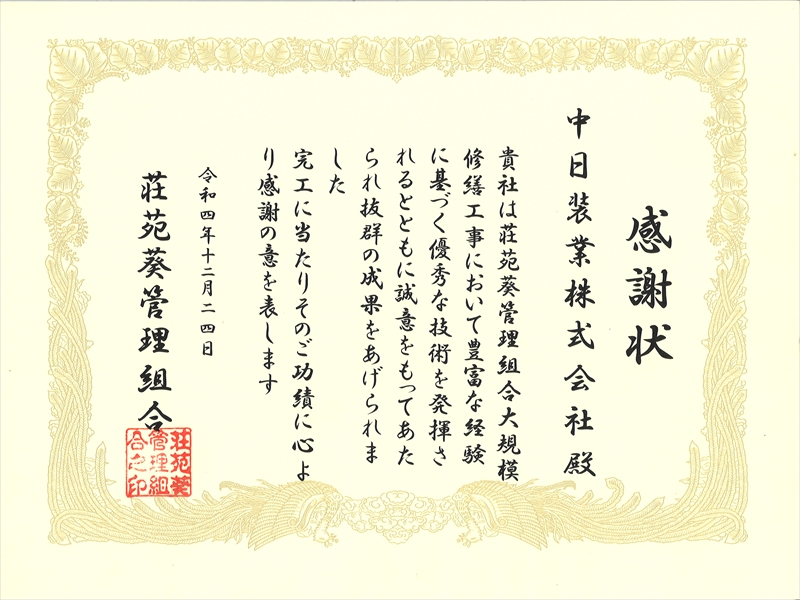 感謝状
中日装業株式会社殿
貴社は荘苑葵管理組合大規模
修繕工事において豊富な経験
に基づく優秀な技術を発揮さ
れるとともに誠意をもってあた
られ抜群の成果をあげられま
した
完工に当たりそのご功績に心よ
り感謝の意を表します
令和四年十二月二四日
荘苑葵管理組合
荘苑葵
管理組
合之印